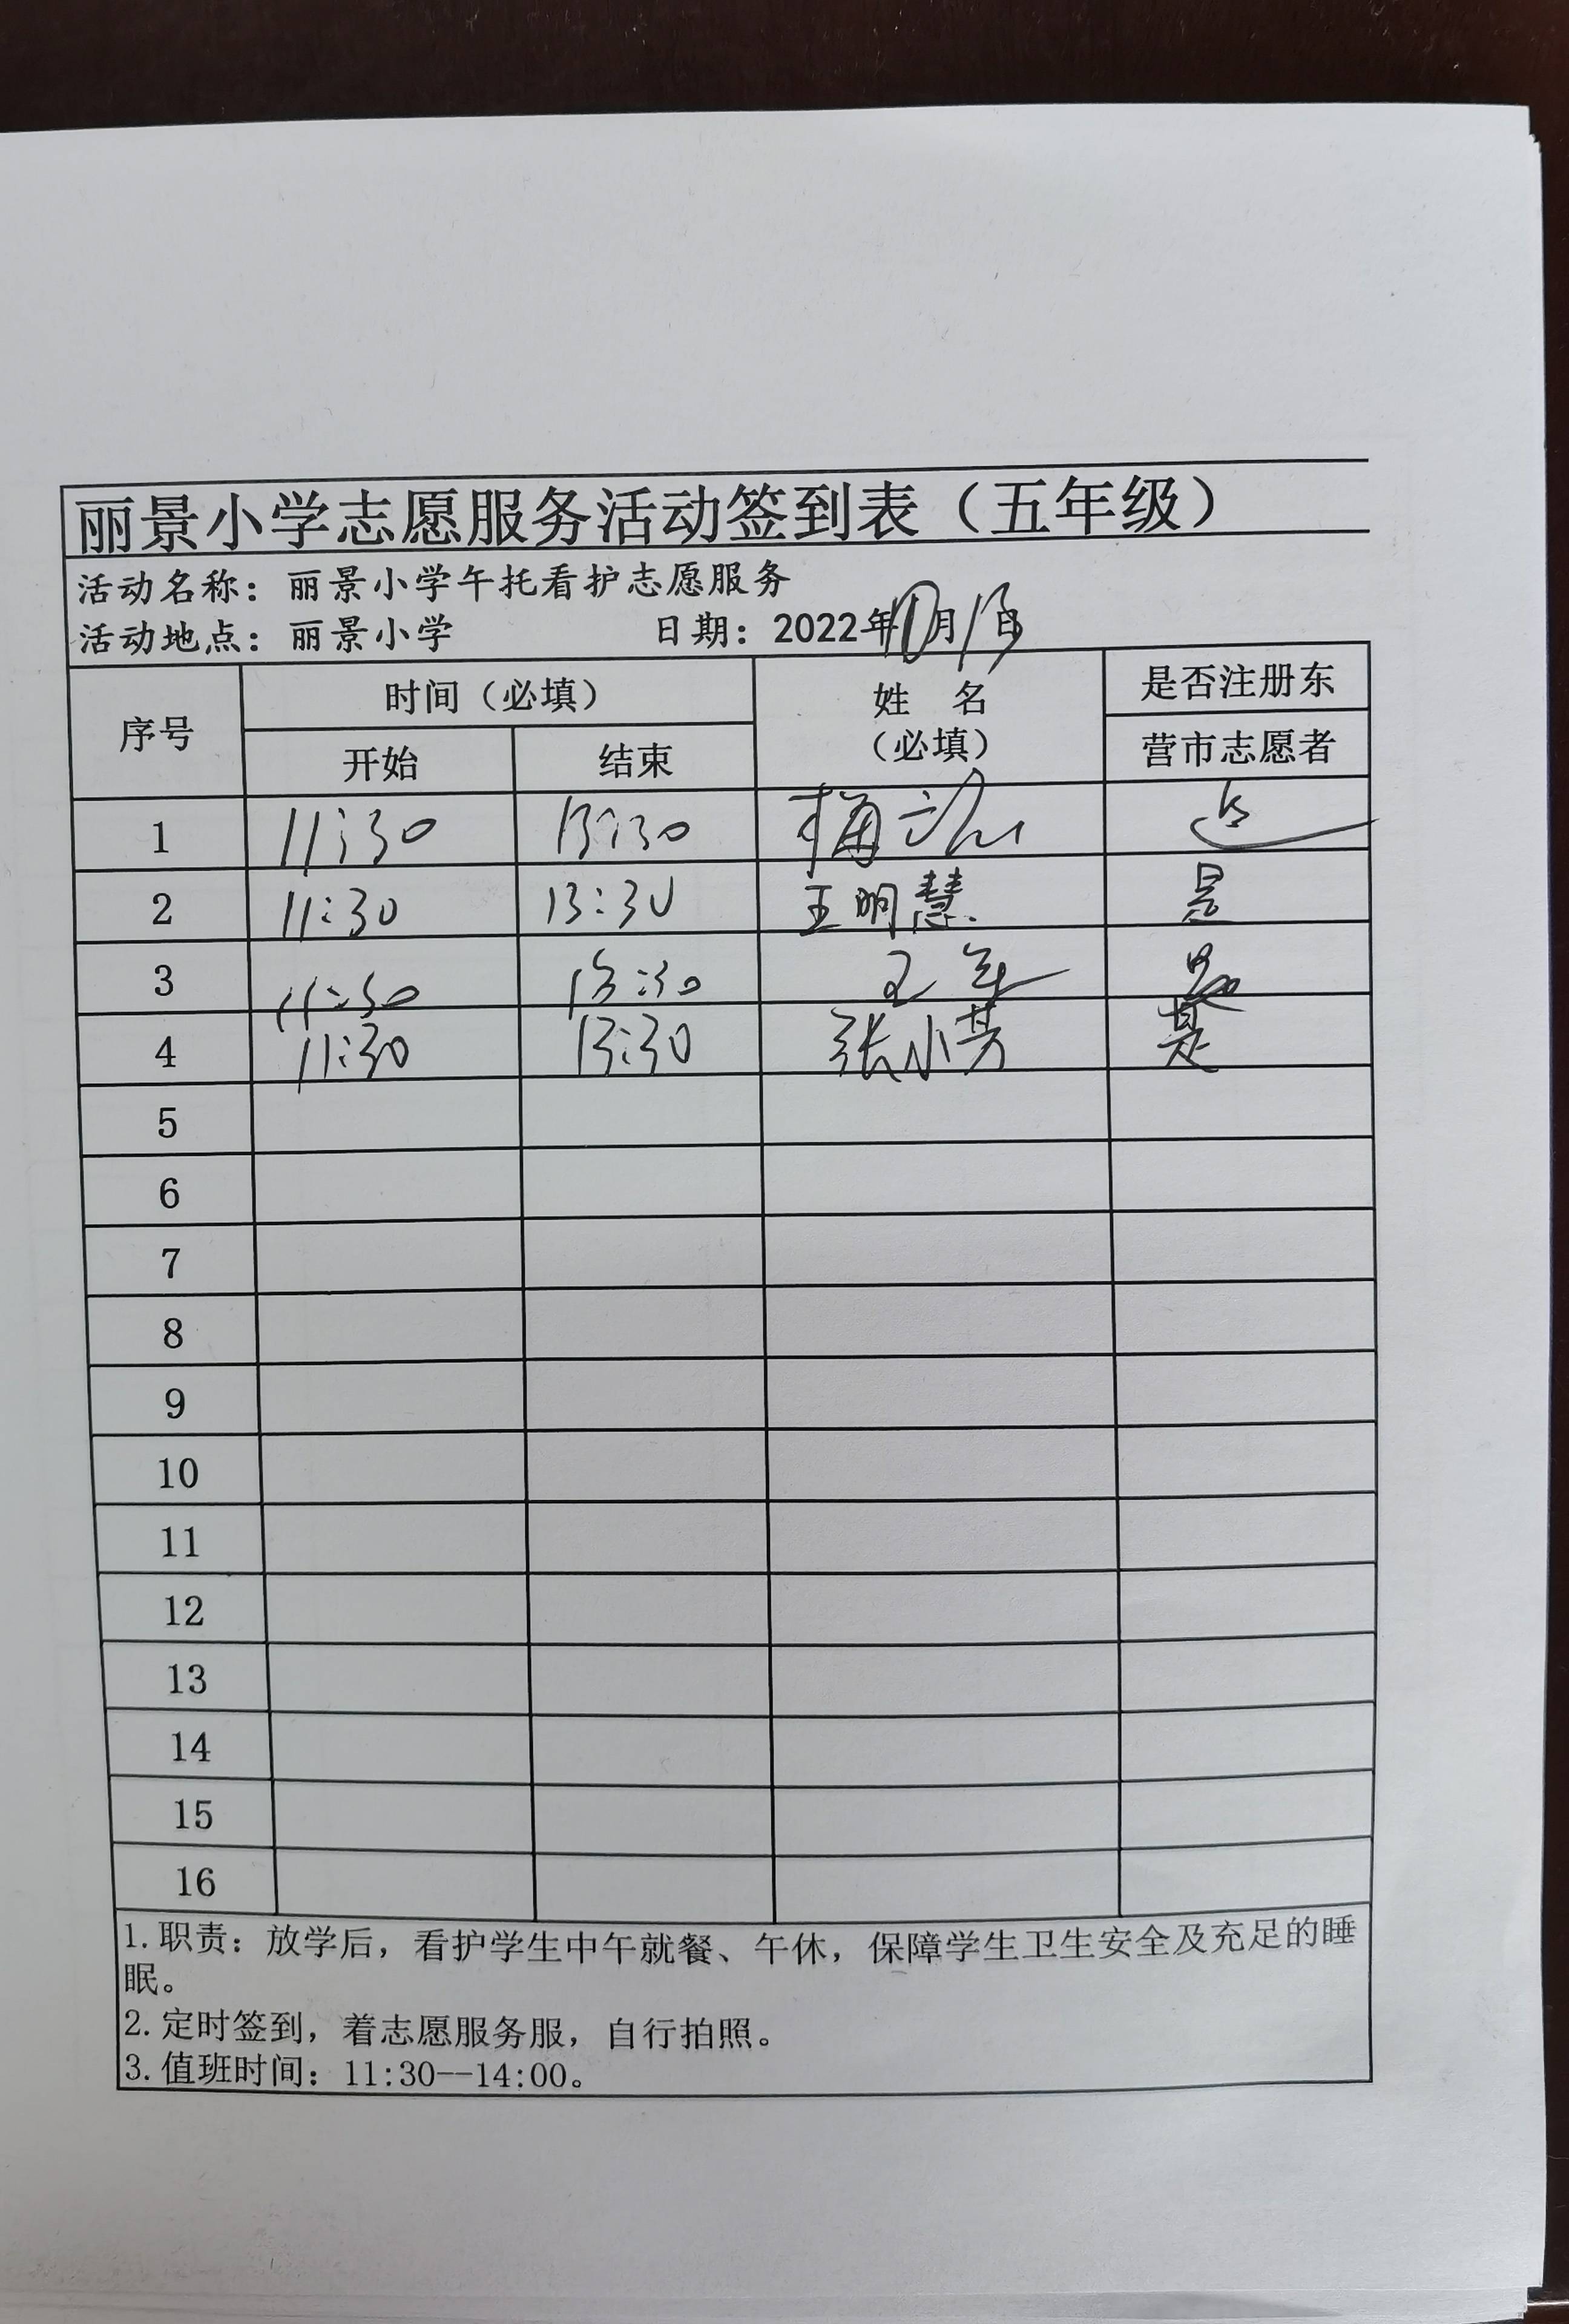 丽景小学志愿服务活动签到表（五年级）
活动名称：丽景小学午托看护志愿服务
活动地点：丽景小学 日期：2022年10月13日
序号 时间（必填） 姓 名（必填） 是否注册东营市志愿者
开始 结束
1 11:30 13:30 梅 是
2 11:30 13:30 王明慧 是
3 11:30 13:30 王 是
4 11:30 13:30 张小芳 是
5
6
7
8
9
10
11
12
13
14
15
16
1.职责：放学后，看护学生中午就餐、午休，保障学生卫生安全及充足的睡
眠。
2.定时签到，着志愿服务服，自行拍照。
3.值班时间：11:30--14:00。